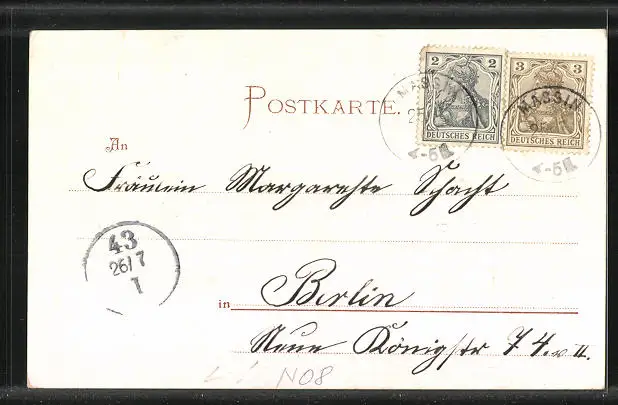 POSTKARTE.
2 3
DEUTSCHES REICH DEUTSCHES REICH
MASSIN MASSIN
An
Fräulein Margarethte Schacht
43
26/7
1
in Berlin
Neue Königstr 74. v II.
NO8